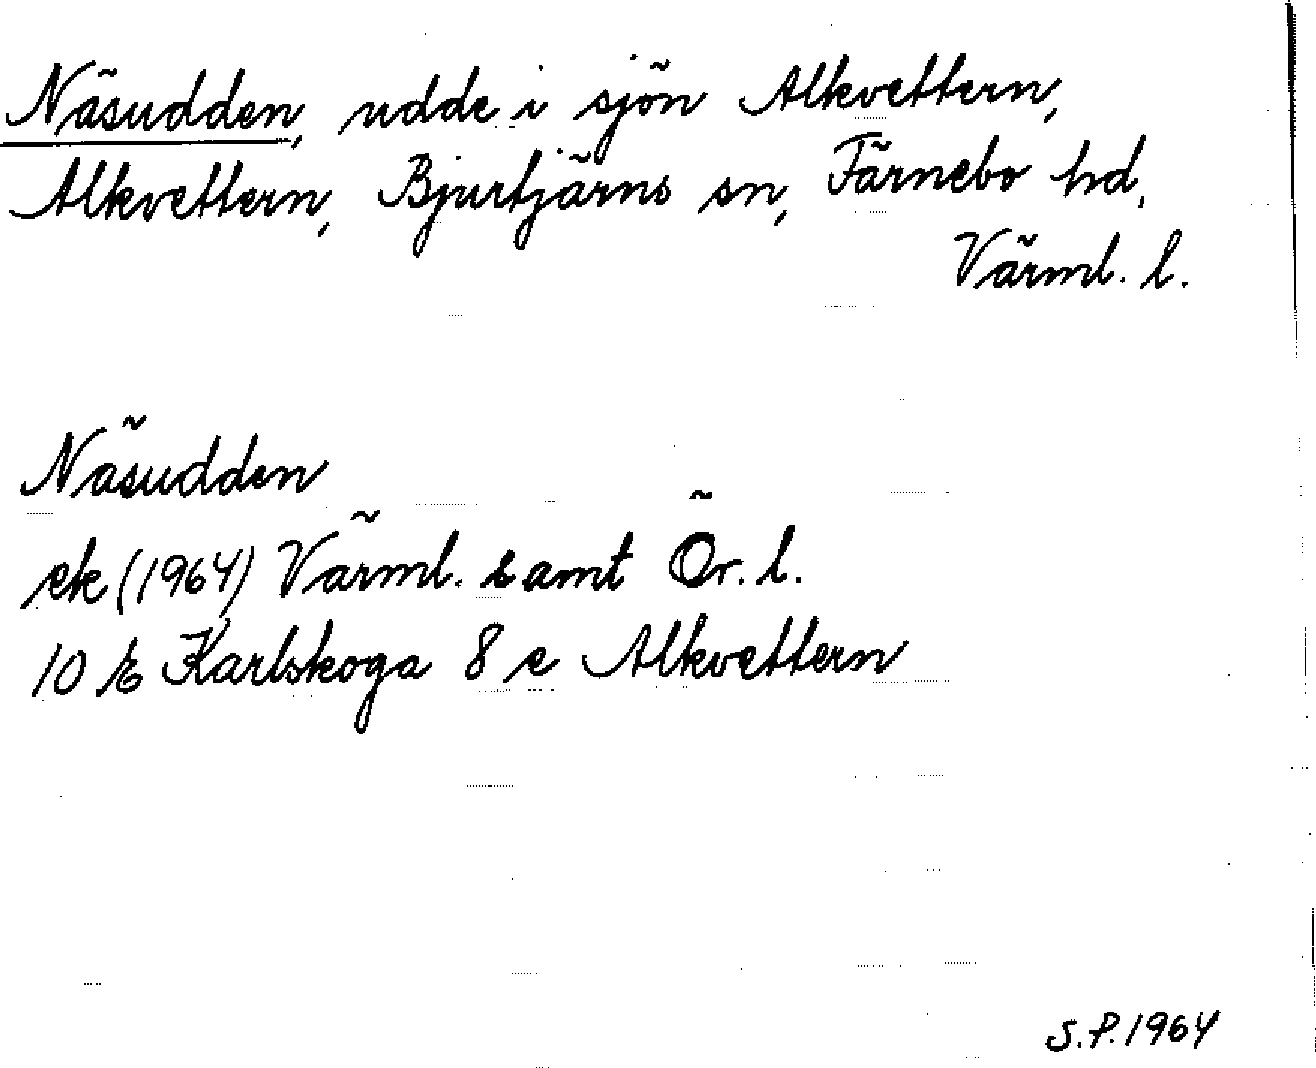 Näsudden, udde i sjön Alkvettern,
Alkvettern, Bjurtjärns sn, Färnebo hd,
Värml. l.
Näsudden
ek (1964) Värml. samt Ör. l.
10 E Karlskoga 8 e Alkvettern
S.P. 1964